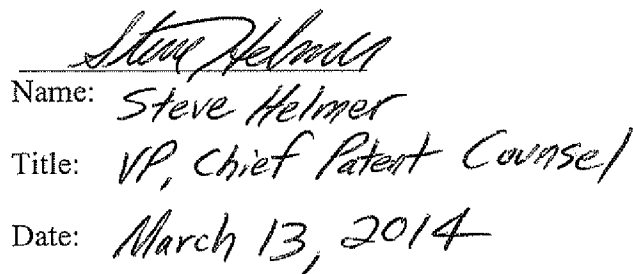 Steve Helmer
Name: Steve Helmer
Title: VP, Chief Patent Counsel
Date: March 13, 2014